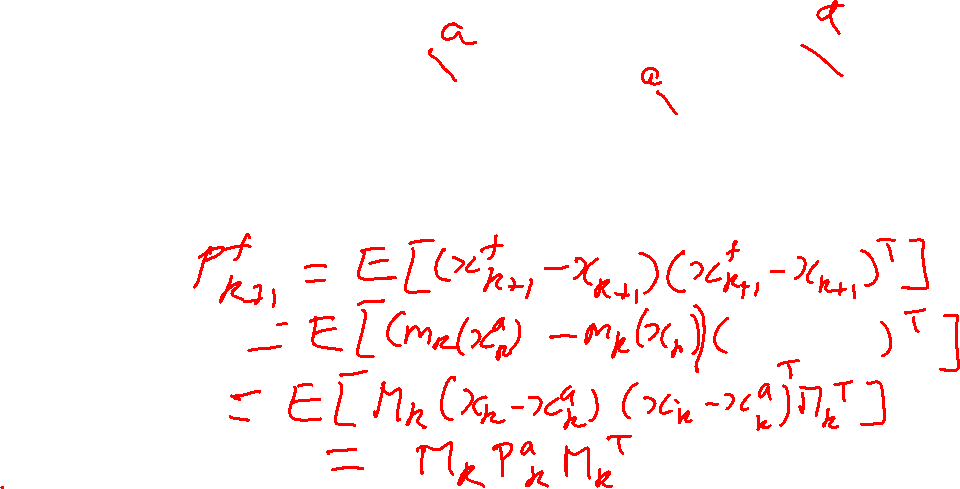 a
d
a
P^f_{k+1} = E[(x^f_{k+1} - x_{k+1})(x^f_{k+1} - x_{k+1})^T]
= E[(m_k(x^a_k) - m_k(x_k))( )^T]
= E[M_k(x_k - x^a_k)(x_k - x^a_k)^T M_k^T]
= M_k P^a_k M_k^T